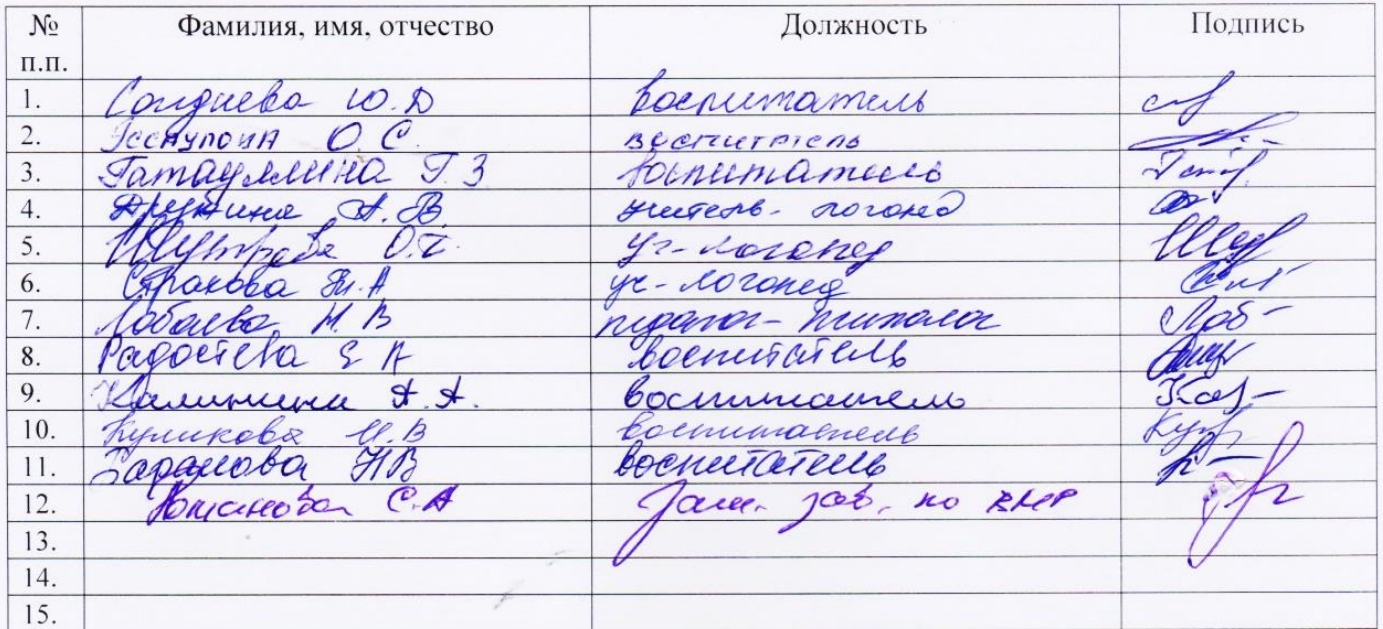 № п.п. Фамилия, имя, отчество Должность Подпись
1. Ю.Д воспитатель
2. О.С. воспитатель
3. Гатауллина Г.З воспитатель
4. Дружина А.В учитель-логопед
5. О.Г. уч-логопед
6. Страхова Т.А уч-логопед
7. Лобаева Н.В педагог-психолог Лоб
8. Радостева Е А воспитатель
9. Калинина А.А. воспитатель Кал
10. Куликова И.В воспитатель Кул
11. НВ воспитатель
12. С.А Зам. зав. по ВМР
13.
14.
15.